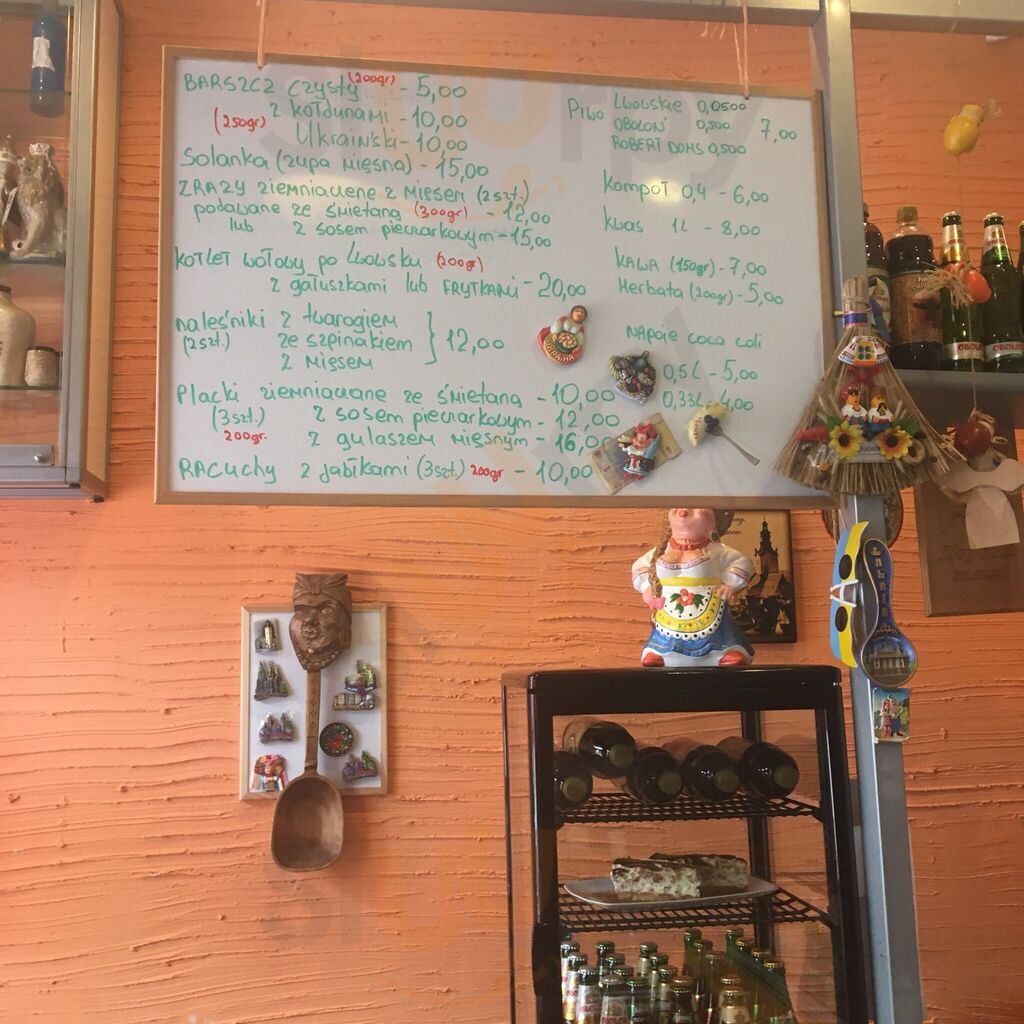 BARSZCZ CZYSTY (200gr) - 5,00
(250gr) z kołdunami - 10,00
Ukraiński - 10,00
Solanka (zupa mięsna) - 15,00
ZRAZY ziemniaczane z mięsem (2szt.)
podawane ze śmietaną (300gr) - 12,00
lub z sosem pieczarkowym - 15,00
KOTLET wołowy po Lwowsku (200gr)
z gałuszkami lub FRYTKAMI - 20,00
naleśniki z twarogiem
(2szt.) ze szpinakiem } 12,00
z mięsem
Placki ziemniaczane ze śmietaną - 10,00
(3szt.) z sosem pieczarkowym - 12,00
200gr. z gulaszem mięsnym - 16,00
RACUCHY z jabłkami (3szt.) 200gr - 10,00
Piwo Lwowskie 0,0500
OBOLOŃ 0,500 7,00
ROBERT DOMS 0,500
Kompot 0,4 - 6,00
Kwas 1L - 8,00
KAWA (150gr) - 7,00
Herbata (200gr) - 5,00
NAPOJE coca coli
0,5L - 5,00
0,33L - 4,00
УКРАЇНА
ЛЬВІВ